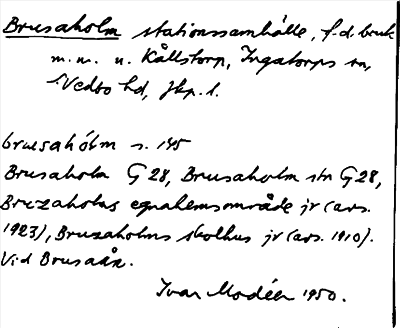 Brusaholm stationssamhälle, f.d. bruk
m.m. u. Källstorp, Ingatorps sn,
S. Vedbo hd, Jkp. l.
brusahólm s. 145
Brusaholm G 28, Brusaholm stn G 28,
Bruzaholms egnahemsområde jr (avs.
1923), Bruzaholms skolhus jr (avs. 1910).
Vid Brusaån.
Ivar Modéer 1950.